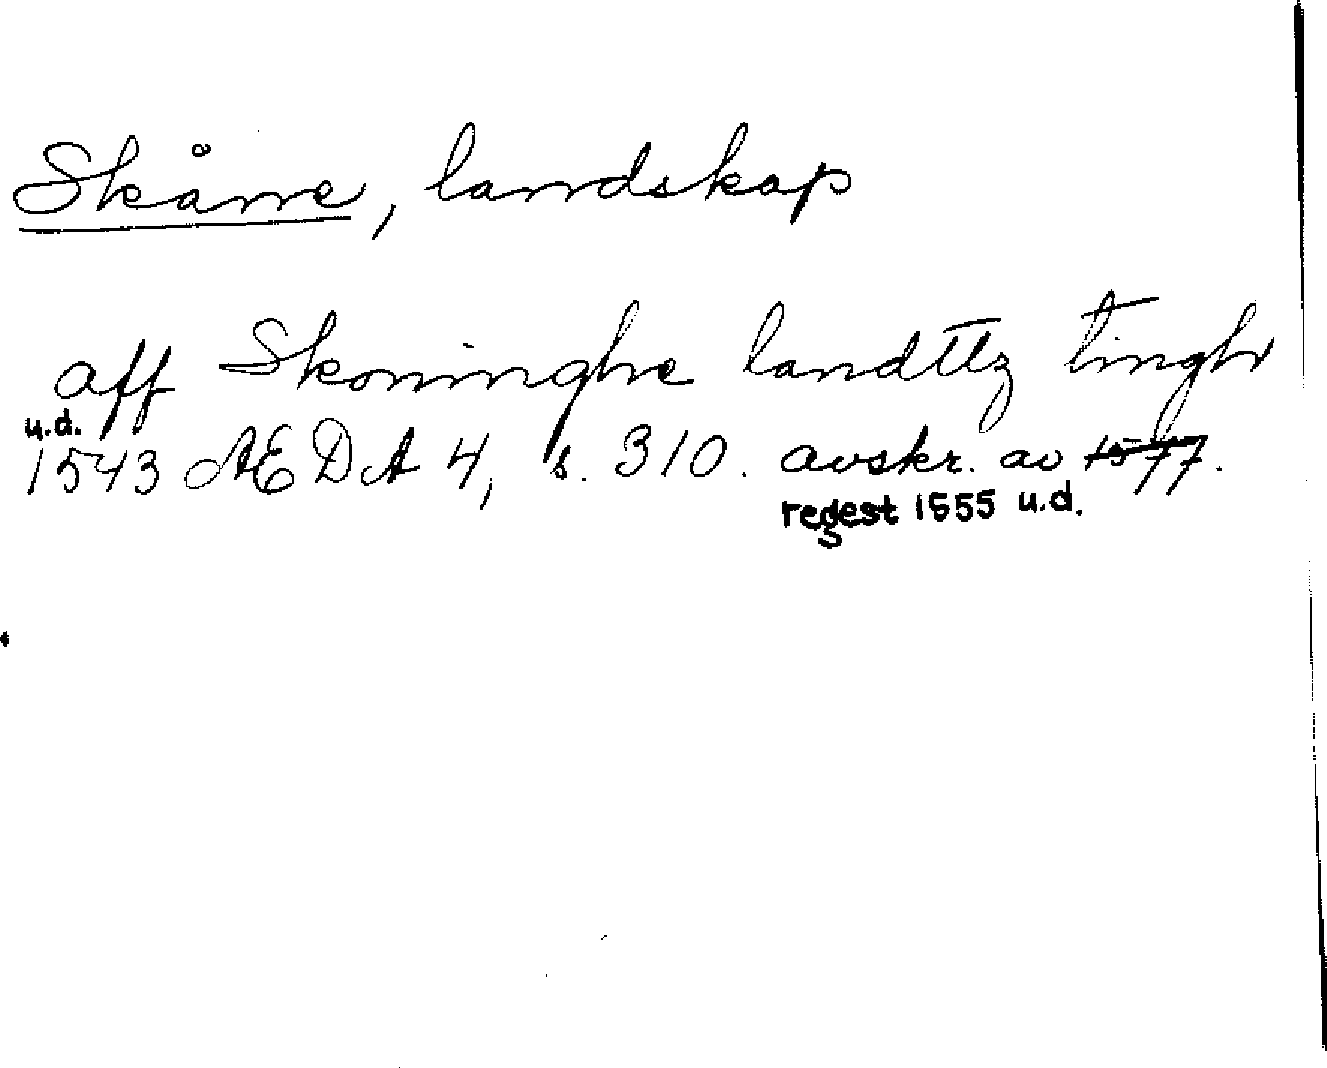 Skåne, landskap
aff Skoninghe landttz tingh
u.d.
1543 AEDA 4, s. 310. avskr. av 1577.
regest 1555 u.d.